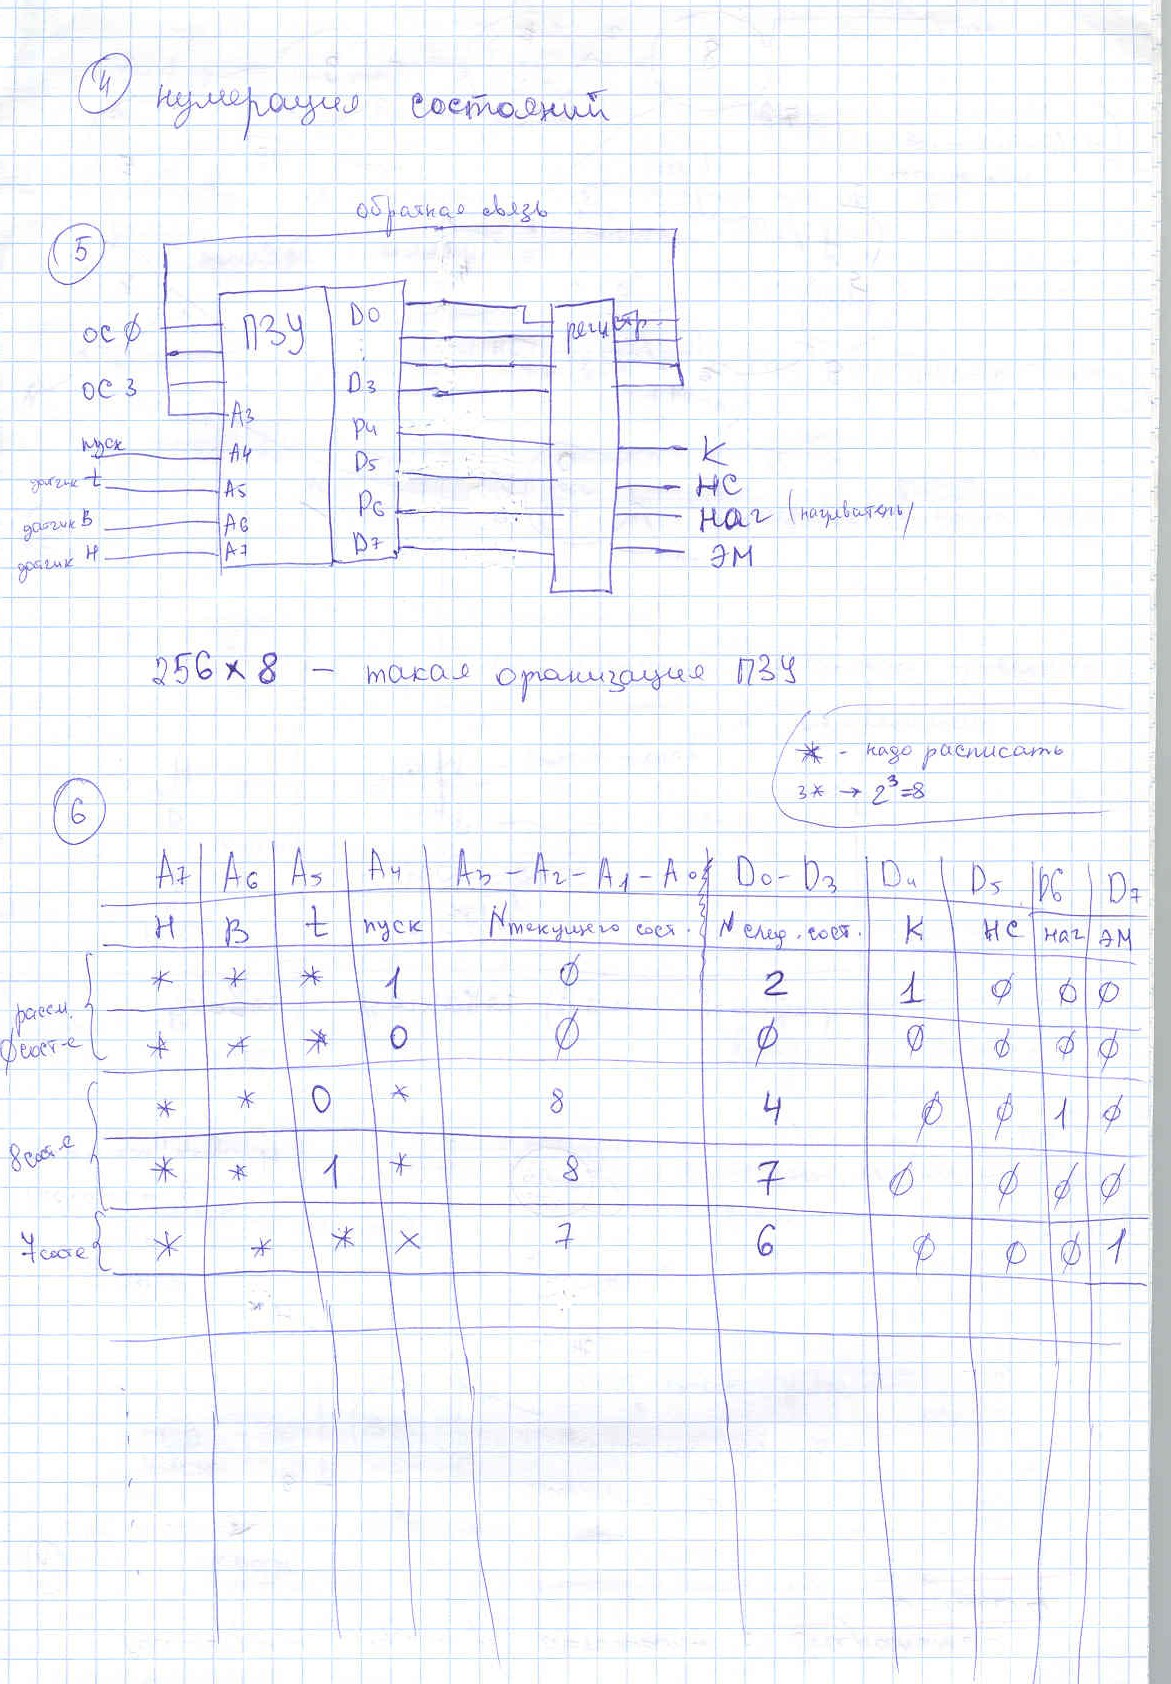 4 нумерация состояний
обратная связь
5
ОС ∅ ПЗУ D0 регистр.
:
ОС 3 D3
A3
пуск A4 D4 К
датчик t A5 D5 НС
датчик В A6 D6 НАГ (нагреватель)
датчик Н A7 D7 ЭМ
256 × 8 – такая организация ПЗУ
* - надо расписать
3* → 2³=8
6
A7 A6 A5 A4 A3 – A2 – A1 – A0 D0 - D3 D4 D5 D6 D7
Н В t пуск N текущего сост. N след. сост. К НС наг ЭМ
рассм. ∅ сост-е
* * * 1 ∅ 2 1 ∅ ∅ ∅
* * * 0 ∅ ∅ ∅ ∅ ∅ ∅
8 сост-е
* * 0 * 8 4 ∅ ∅ 1 ∅
* * 1 * 8 7 ∅ ∅ ∅ ∅
7 сост е * * * × 7 6 ∅ ∅ ∅ 1